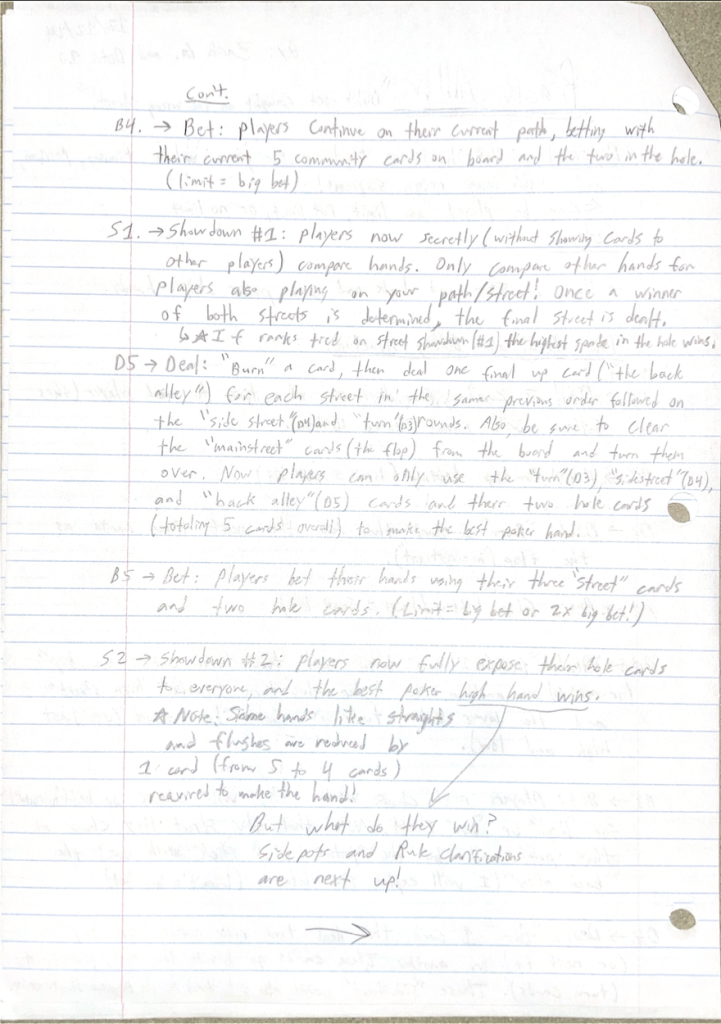 Con't.
B4. → Bet: players Continue on their current path, betting with
their current 5 community cards on board and the two in the hole.
(limit = big bet)
S1. → Showdown #1: players now secretly (without showing cards to
other players) compare hands. Only compare other hands for
players also playing on your path/street! Once a winner
of both streets is determined, the final street is dealt.
↳ ☆ If ranks tied on street showdown (#1) the highest spade in the hole wins.
D5 → Deal: "Burn" a card, then deal one final up card ("the back
alley") for each street in the same previous order followed on
the "side street"(D4) and "turn"(D3) rounds. Also, be sure to clear
the "mainstreet" cards (the flop) from the board and turn them
over. Now players can only use the "turn"(D3), "sidestreet"(D4),
and "back alley"(D5) cards and their two hole cards
(totaling 5 cards overall) to make the best poker hand.
B5 → Bet: Players bet their hands using their three "street" cards
and two hole cards. (Limit = big bet or 2x big bet!)
S2 → Showdown #2: players now fully expose their hole cards
to everyone, and the best poker high hand wins.
☆ Note: hands like straights
and flushes are reduced by
1 card (from 5 to 4 cards)
required to make the hand!
But what do they win?
Side pots and Rule Clarifications
are next up!
→